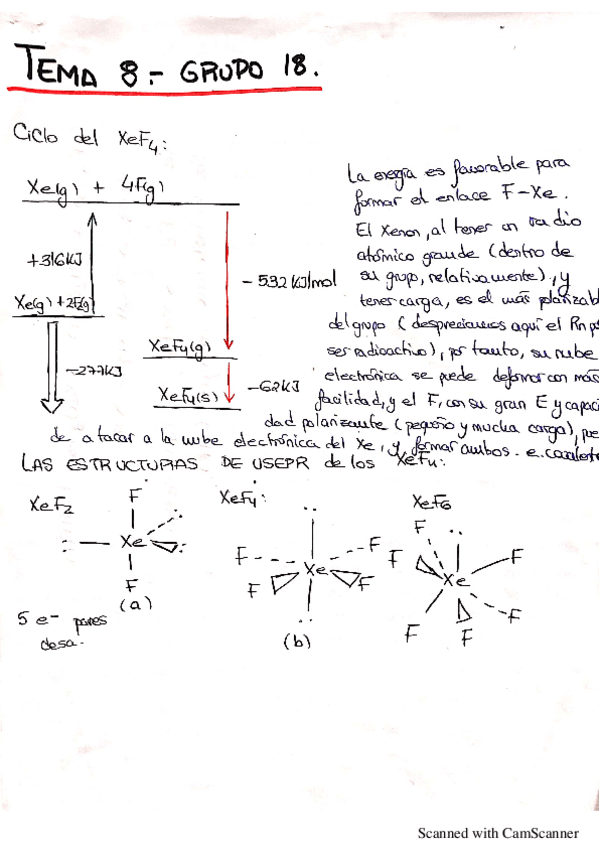 TEMA 8.- GRUPO 18.
Ciclo del XeF4:
Xe(g) + 4F(g)
+316KJ
- 532 KJ/mol
Xe(g) + 2F2(g)
-277KJ
XeF4(g)
-62KJ
XeF4(s)
La energía es favorable para
formar el enlace F-Xe.
El Xenon, al tener un radio
atómico grande (dentro de
su grupo, relativamente), y
tener carga, es el más polarizab
del grupo (despreciamos aquí el Rn p
ser radioactivo), por tanto, su nube
electrónica se puede deformar con más
facilidad, y el F, con su gran E y capaci
dad polarizante (pequeño y mucha carga), pue
de atacar a la nube electrónica del Xe, y formar ambos. e. covalente
LAS ESTRUCTURAS DE USEPR de los XeFn:
XeF2
F
Xe
F
(a)
5 e- pares
desa.
XeF4:
F
F
Xe
F
F
(b)
XeF6
F
F
F
Xe
F
F
F
Scanned with CamScanner